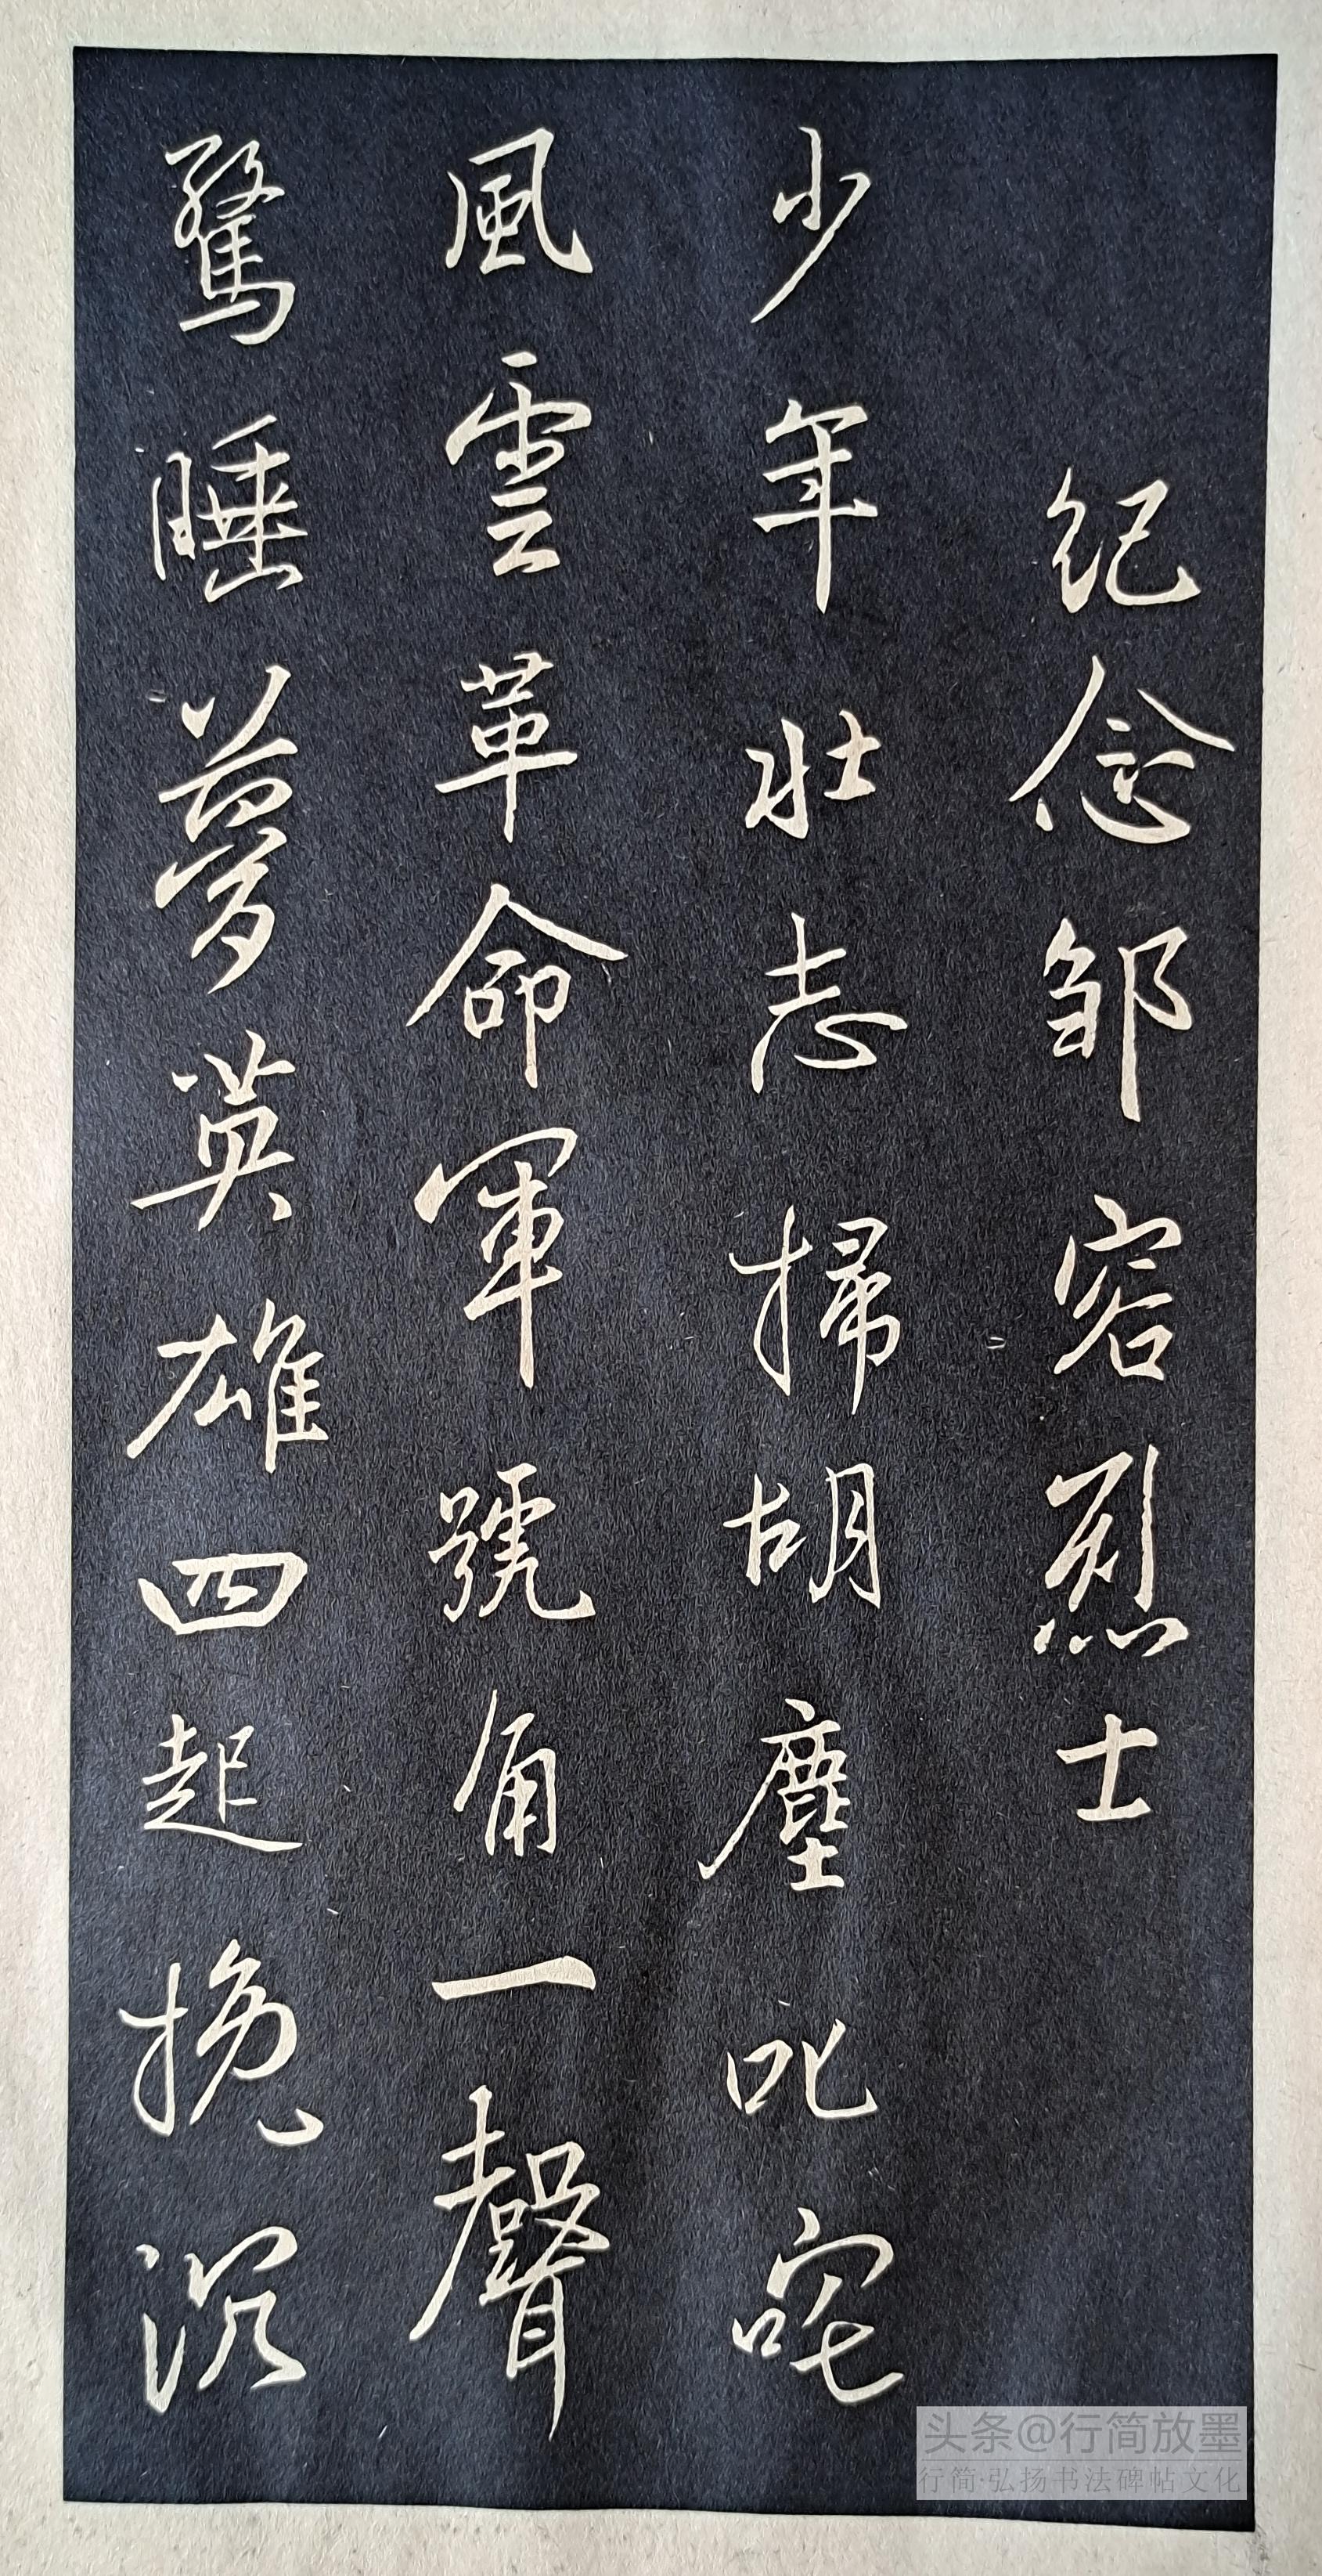 纪念邹容烈士
少年壮志掃胡塵叱咤
風雲革命軍號角一聲
驚睡夢英雄四起挽沉
头条@行简放墨
行简·弘扬书法碑帖文化